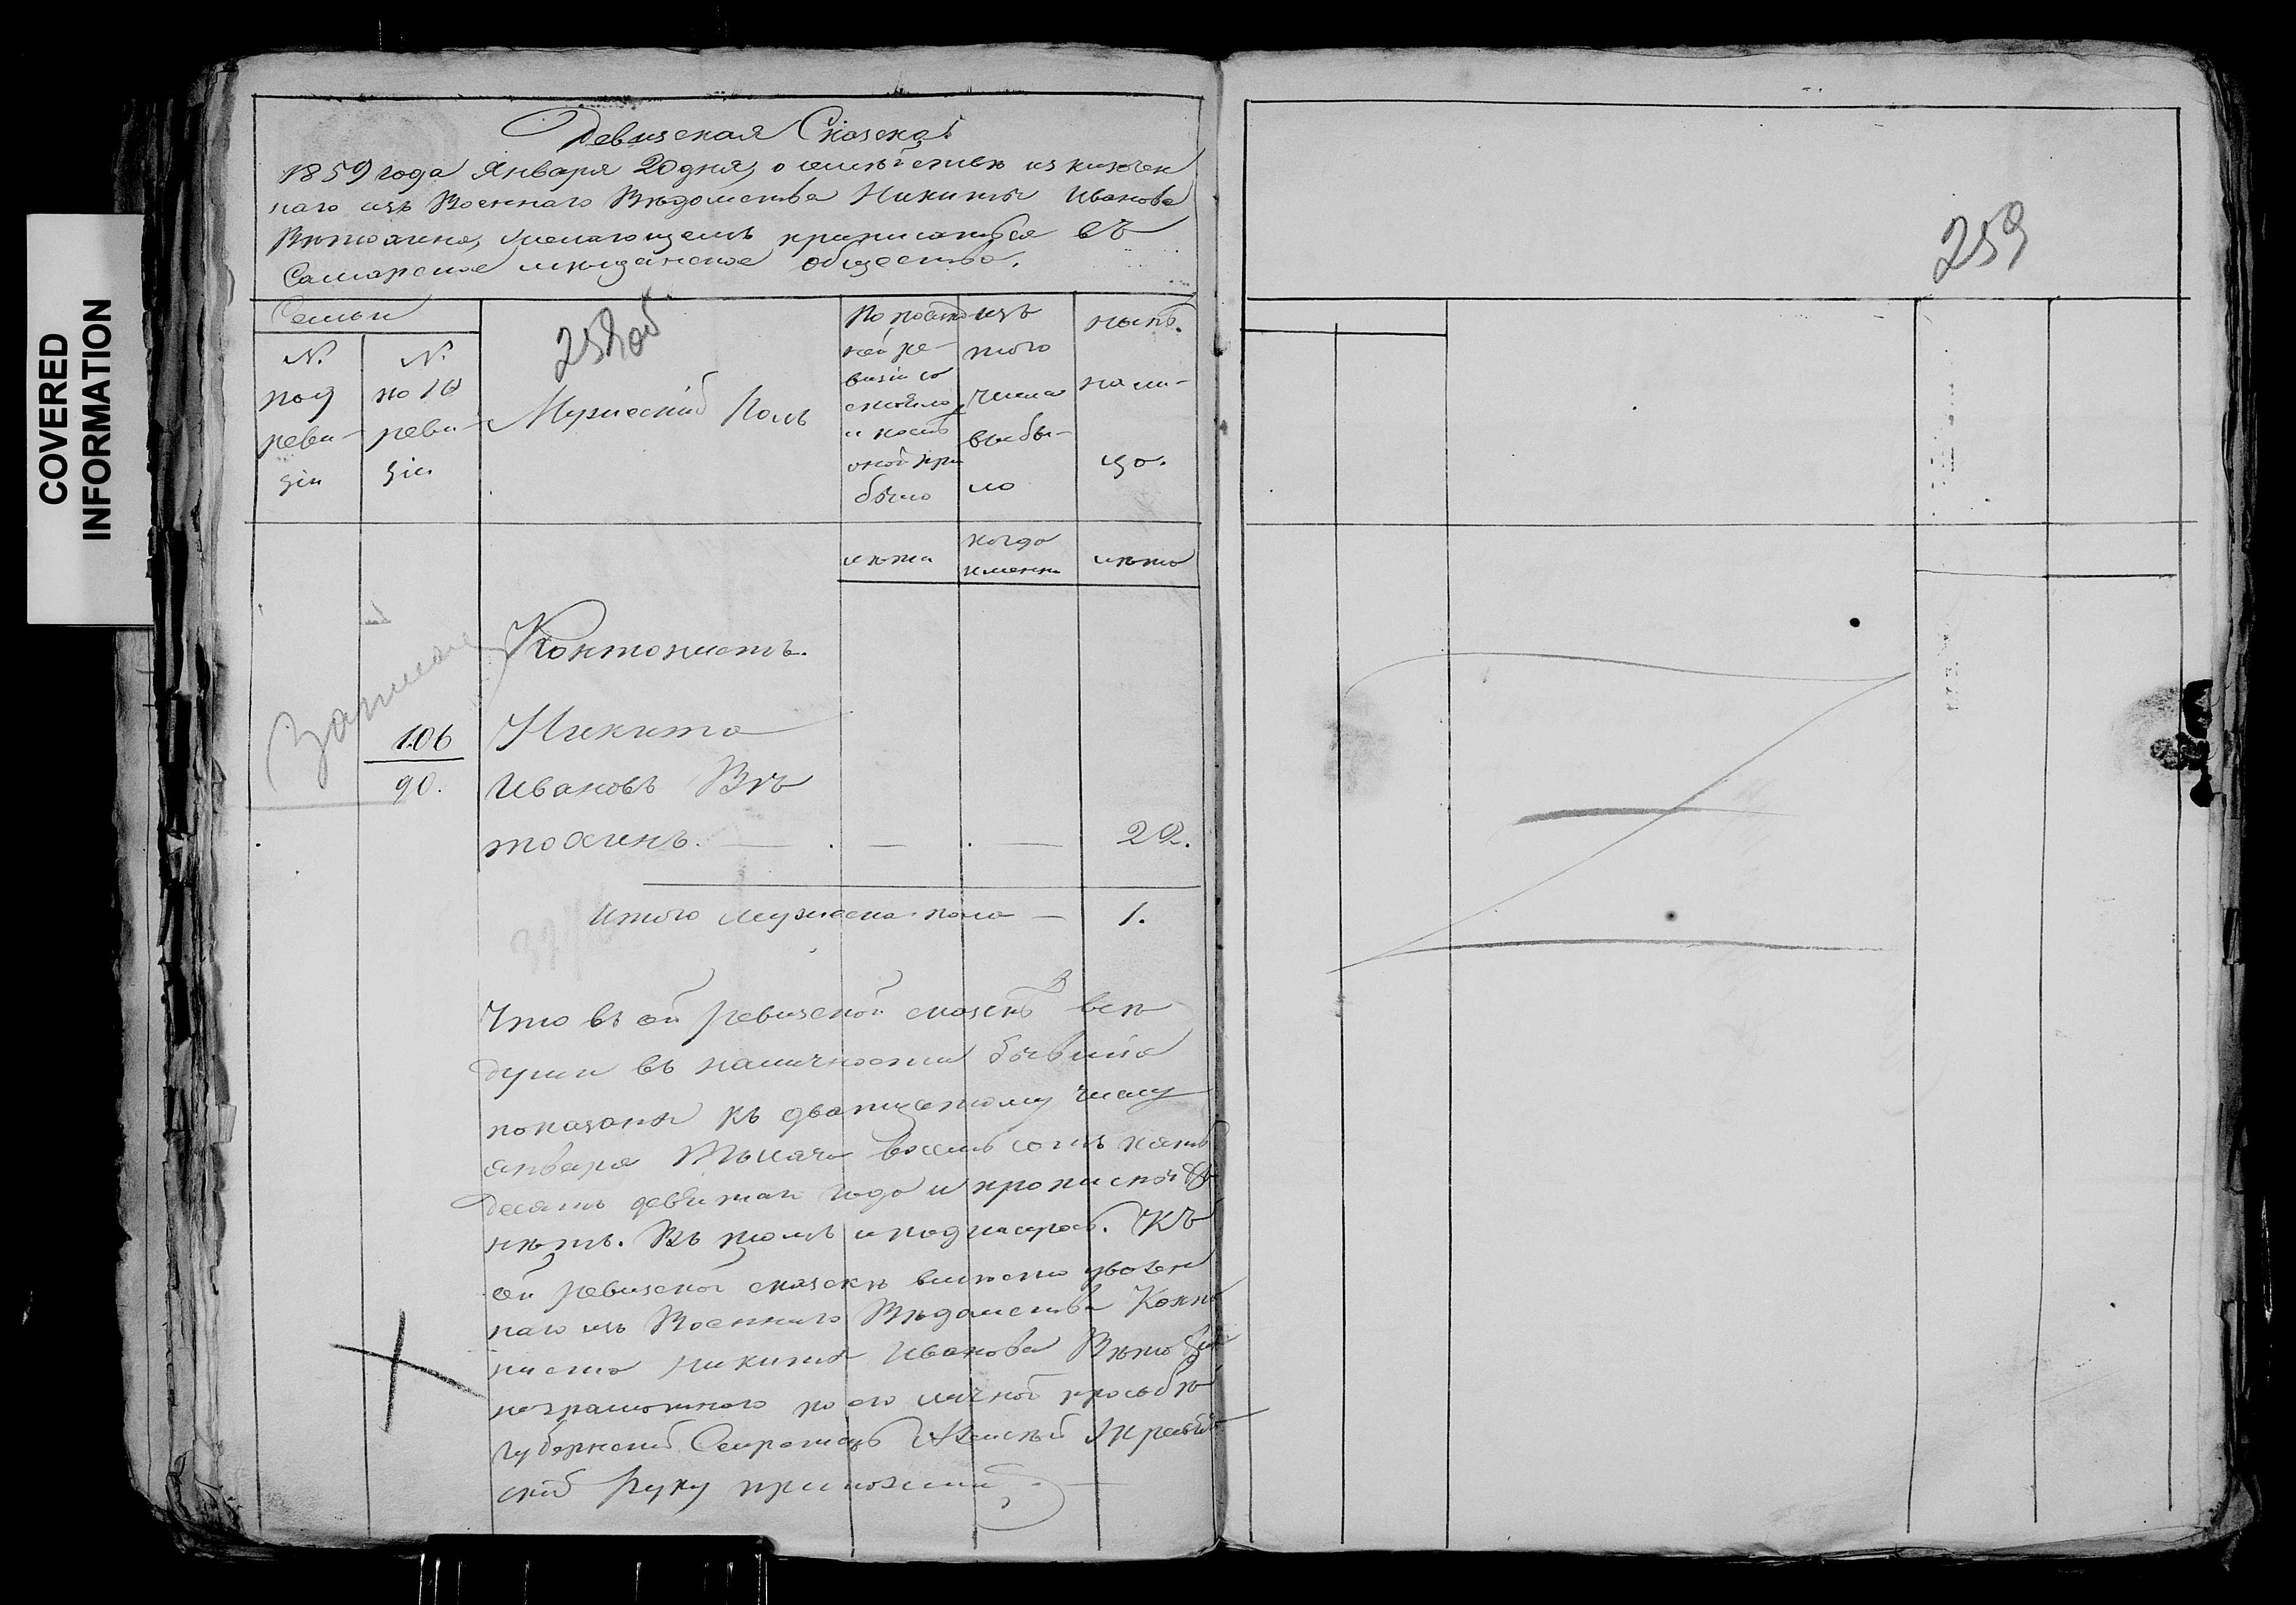 COVERED
INFORMATION
Ревизская Сказка
1859 года Января 20 дня, о семействе исключен
наго изъ Военнаго Вѣдомства Никиты Иванова
желающемъ приписаться въ
Самарское мѣщанское общество.
Семьи
N. по 9 реви-зіи
N. по 10 реви-зіи
258 об
Мужескій Полъ
По послѣд ней ре-визіи со стояло и послѣ оной при было
изъ того числа выбы-ло
нынѣ на ли-цо.
лѣта
когда именно
лѣта
Кантонистъ.
106
90.
Никита
Ивановъ Вѣ
22.
Итого мужеска пола — 1.
Что въ сей ревизской сказкѣ всѣ
души въ наличности бывшія
показаны къ двадцатому числу
января Тысяча восемь сотъ пять
десятъ девятаго года и прописной
нѣтъ. Въ томъ и подписуюсь. Къ
сей ревизской сказкѣ вмѣсто уволен
наго изъ Военнаго Вѣдомства Канто
ниста Никиты Иванова
неграмотнаго по его личной прозьбѣ
Губернскій Секретарь
скій руку приложилъ.
259